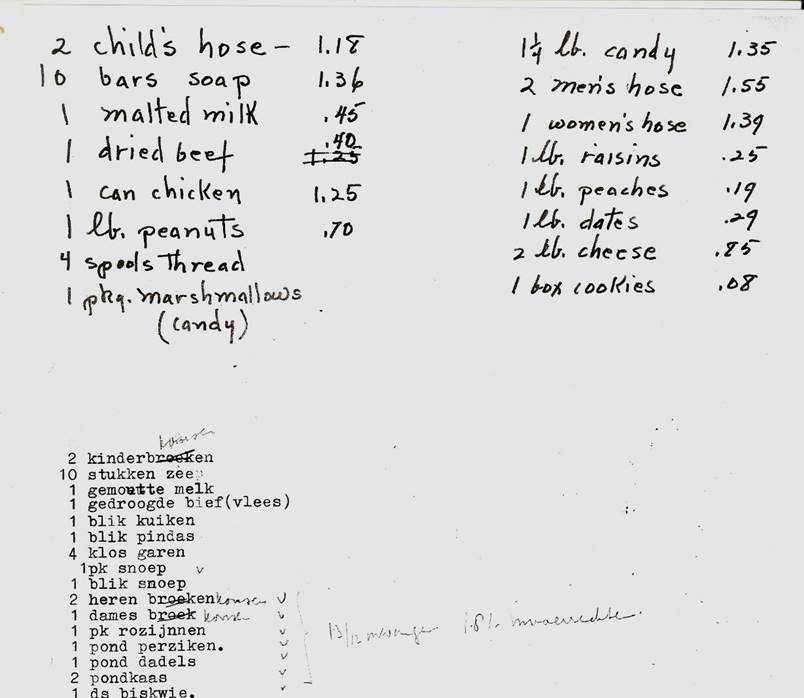 2 child's hose — 1.18
10 bars soap 1.36
1 malted milk .45
.40
1 dried beef 1.25
1 can chicken 1.25
1 lb. peanuts .70
4 spools Thread
1 pkg. marshmallows
(candy)
1¼ lb. candy 1.35
2 men's hose 1.55
1 women's hose 1.39
1 lb. raisins .25
1 lb. peaches .19
1 lb. dates .29
2 lb. cheese .85
1 box cookies .08
2 kinderbroeken
10 stukken zeep
1 gemoutte melk
1 gedroogde bief(vlees)
1 blik kuiken
1 blik pindas
4 klos garen
1pk snoep v
1 blik snoep
2 heren broeken kousen v
1 dames broek v
1 pk rozijnnen v
1 pond perziken. v
1 pond dadels v
2 pondkaas v
1 ds biskwie. v